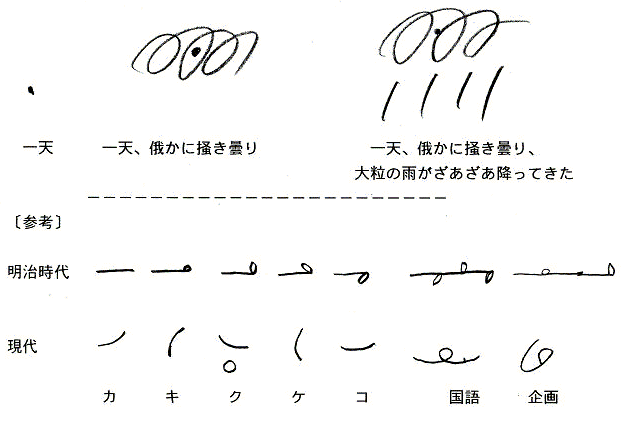 一天 一天、俄かに掻き曇り 一天、俄かに掻き曇り、
大粒の雨がざあざあ降ってきた
〔参考〕
明治時代
現代
カ キ ク ケ コ 国語 企画